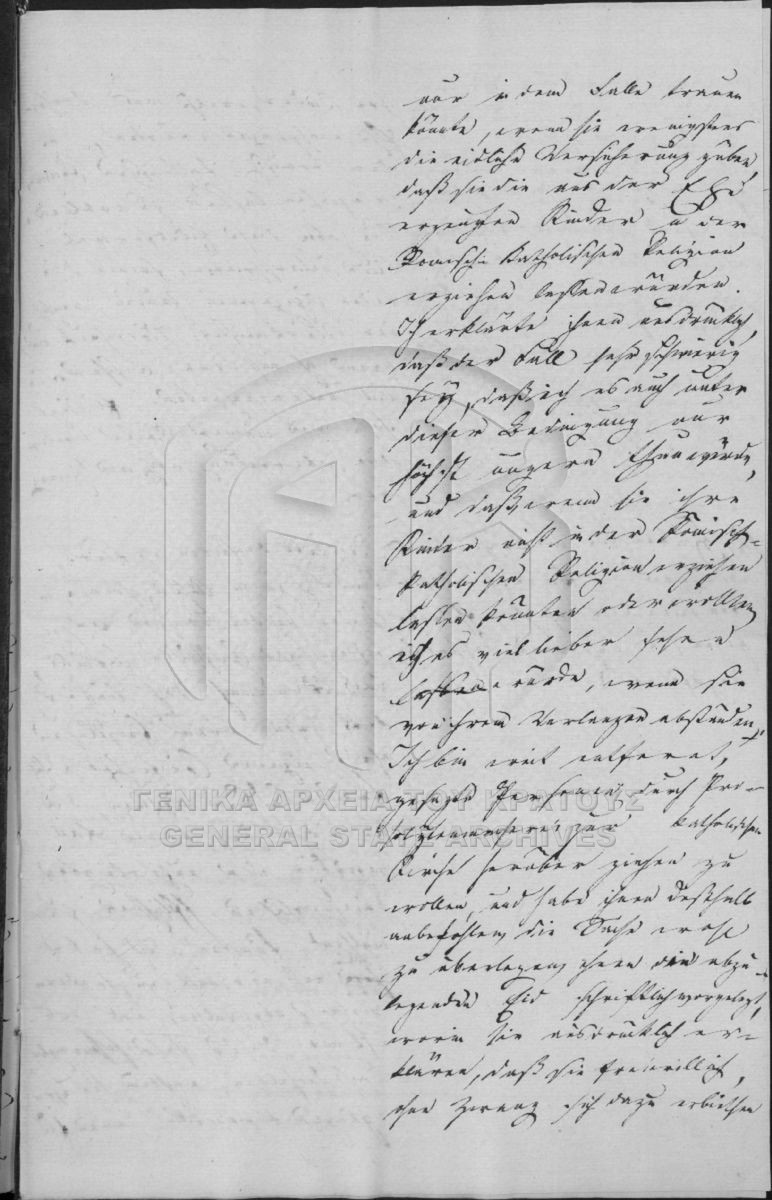 nur in dem Falle trauen
könnte, wenn sie wenigstens
die eidliche Versicherung gäben,
daß sie die aus der Ehe
erzeugten Kinder in der
Römisch-Katholischen Religion
erziehen lassen würden.
Ich erklärte ihnen ausdrücklich,
daß der Fall sehr schwierig
sey, daß ich es auch unter
dieser Bedingung nur
höchst ungern thun würde,
und daß wenn sie ihre
Kinder nicht in der Römisch=
Katholischen Religion erziehen
lassen könnten oder wollten,
ich es viel lieber sehen
würde, wenn sie
von ihrem Verlangen abständen.
Ich bin weit entfernt,
gesagte Personen durch Pro=
selytenmacherei zur Katholischen
Kirche herüber ziehen zu
wollen, und habe ihnen deßhalb
anbefohlen, die Sache wohl
zu überlegen, ihnen den abzu=
legenden Eid schriftlich vorgelegt,
worin sie ausdrücklich er=
klären, daß sie freiwillig,
ohne Zwang sich dazu erbiethen
ΓΕΝΙΚΑ ΑΡΧΕΙΑ ΤΟΥ ΚΡΑΤΟΥΣ
GENERAL STATE ARCHIVES